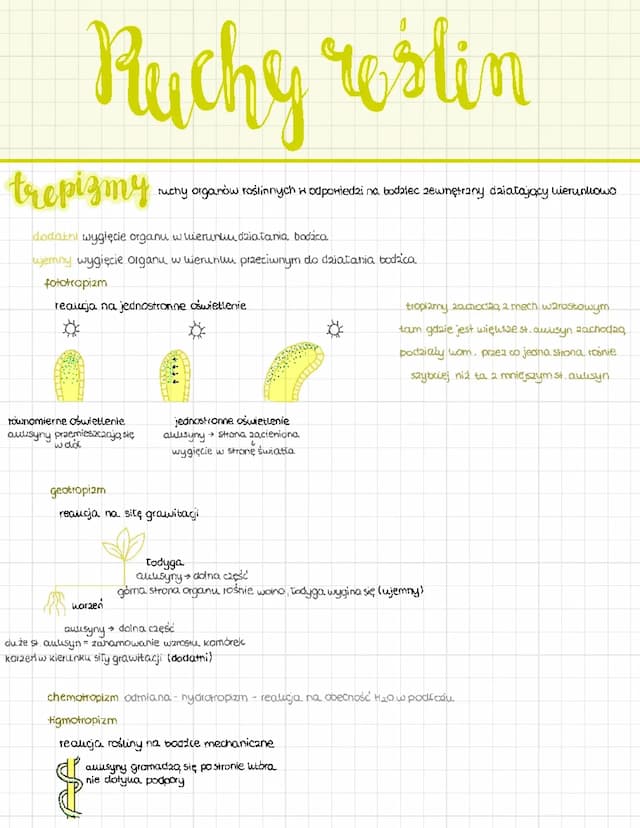 Ruchy roślin
tropizmy ruchy organów roślinnych w odpowiedzi na bodziec zewnętrzny działający kierunkowo
dodatni wygięcie organu w kierunku działania bodźca
ujemny wygięcie organu w kierunku przeciwnym do działania bodźca
fototropizm
reakcja na jednostronne oświetlenie
tropizmy zachodzą z mech. wzrostowym
tam gdzie jest większe st. auksyn zachodzą
podziały kom. przez co jedna strona rośnie
szybciej niż ta z mniejszym st. auksyn
równomierne oświetlenie
auksyny przemieszczają się
w dół
jednostronne oświetlenie
auksyny → strona zacieniona
↓
wygięcie w stronę światła
geotropizm
reakcja na siłę grawitacji
łodyga
auksyny → dolna część
górna strona organu rośnie wolno, łodyga wygina się (ujemny)
korzeń
auksyny → dolna część
duże st. auksyn = zahamowanie wzrostu komórek
korzeń w kierunku siły grawitacji (dodatni)
chemotropizm odmiana - hydrotropizm - reakcja na obecność H2O w podłożu
tigmotropizm
reakcja rośliny na bodźce mechaniczne
auksyny gromadzą się po stronie która
nie dotyka podpory